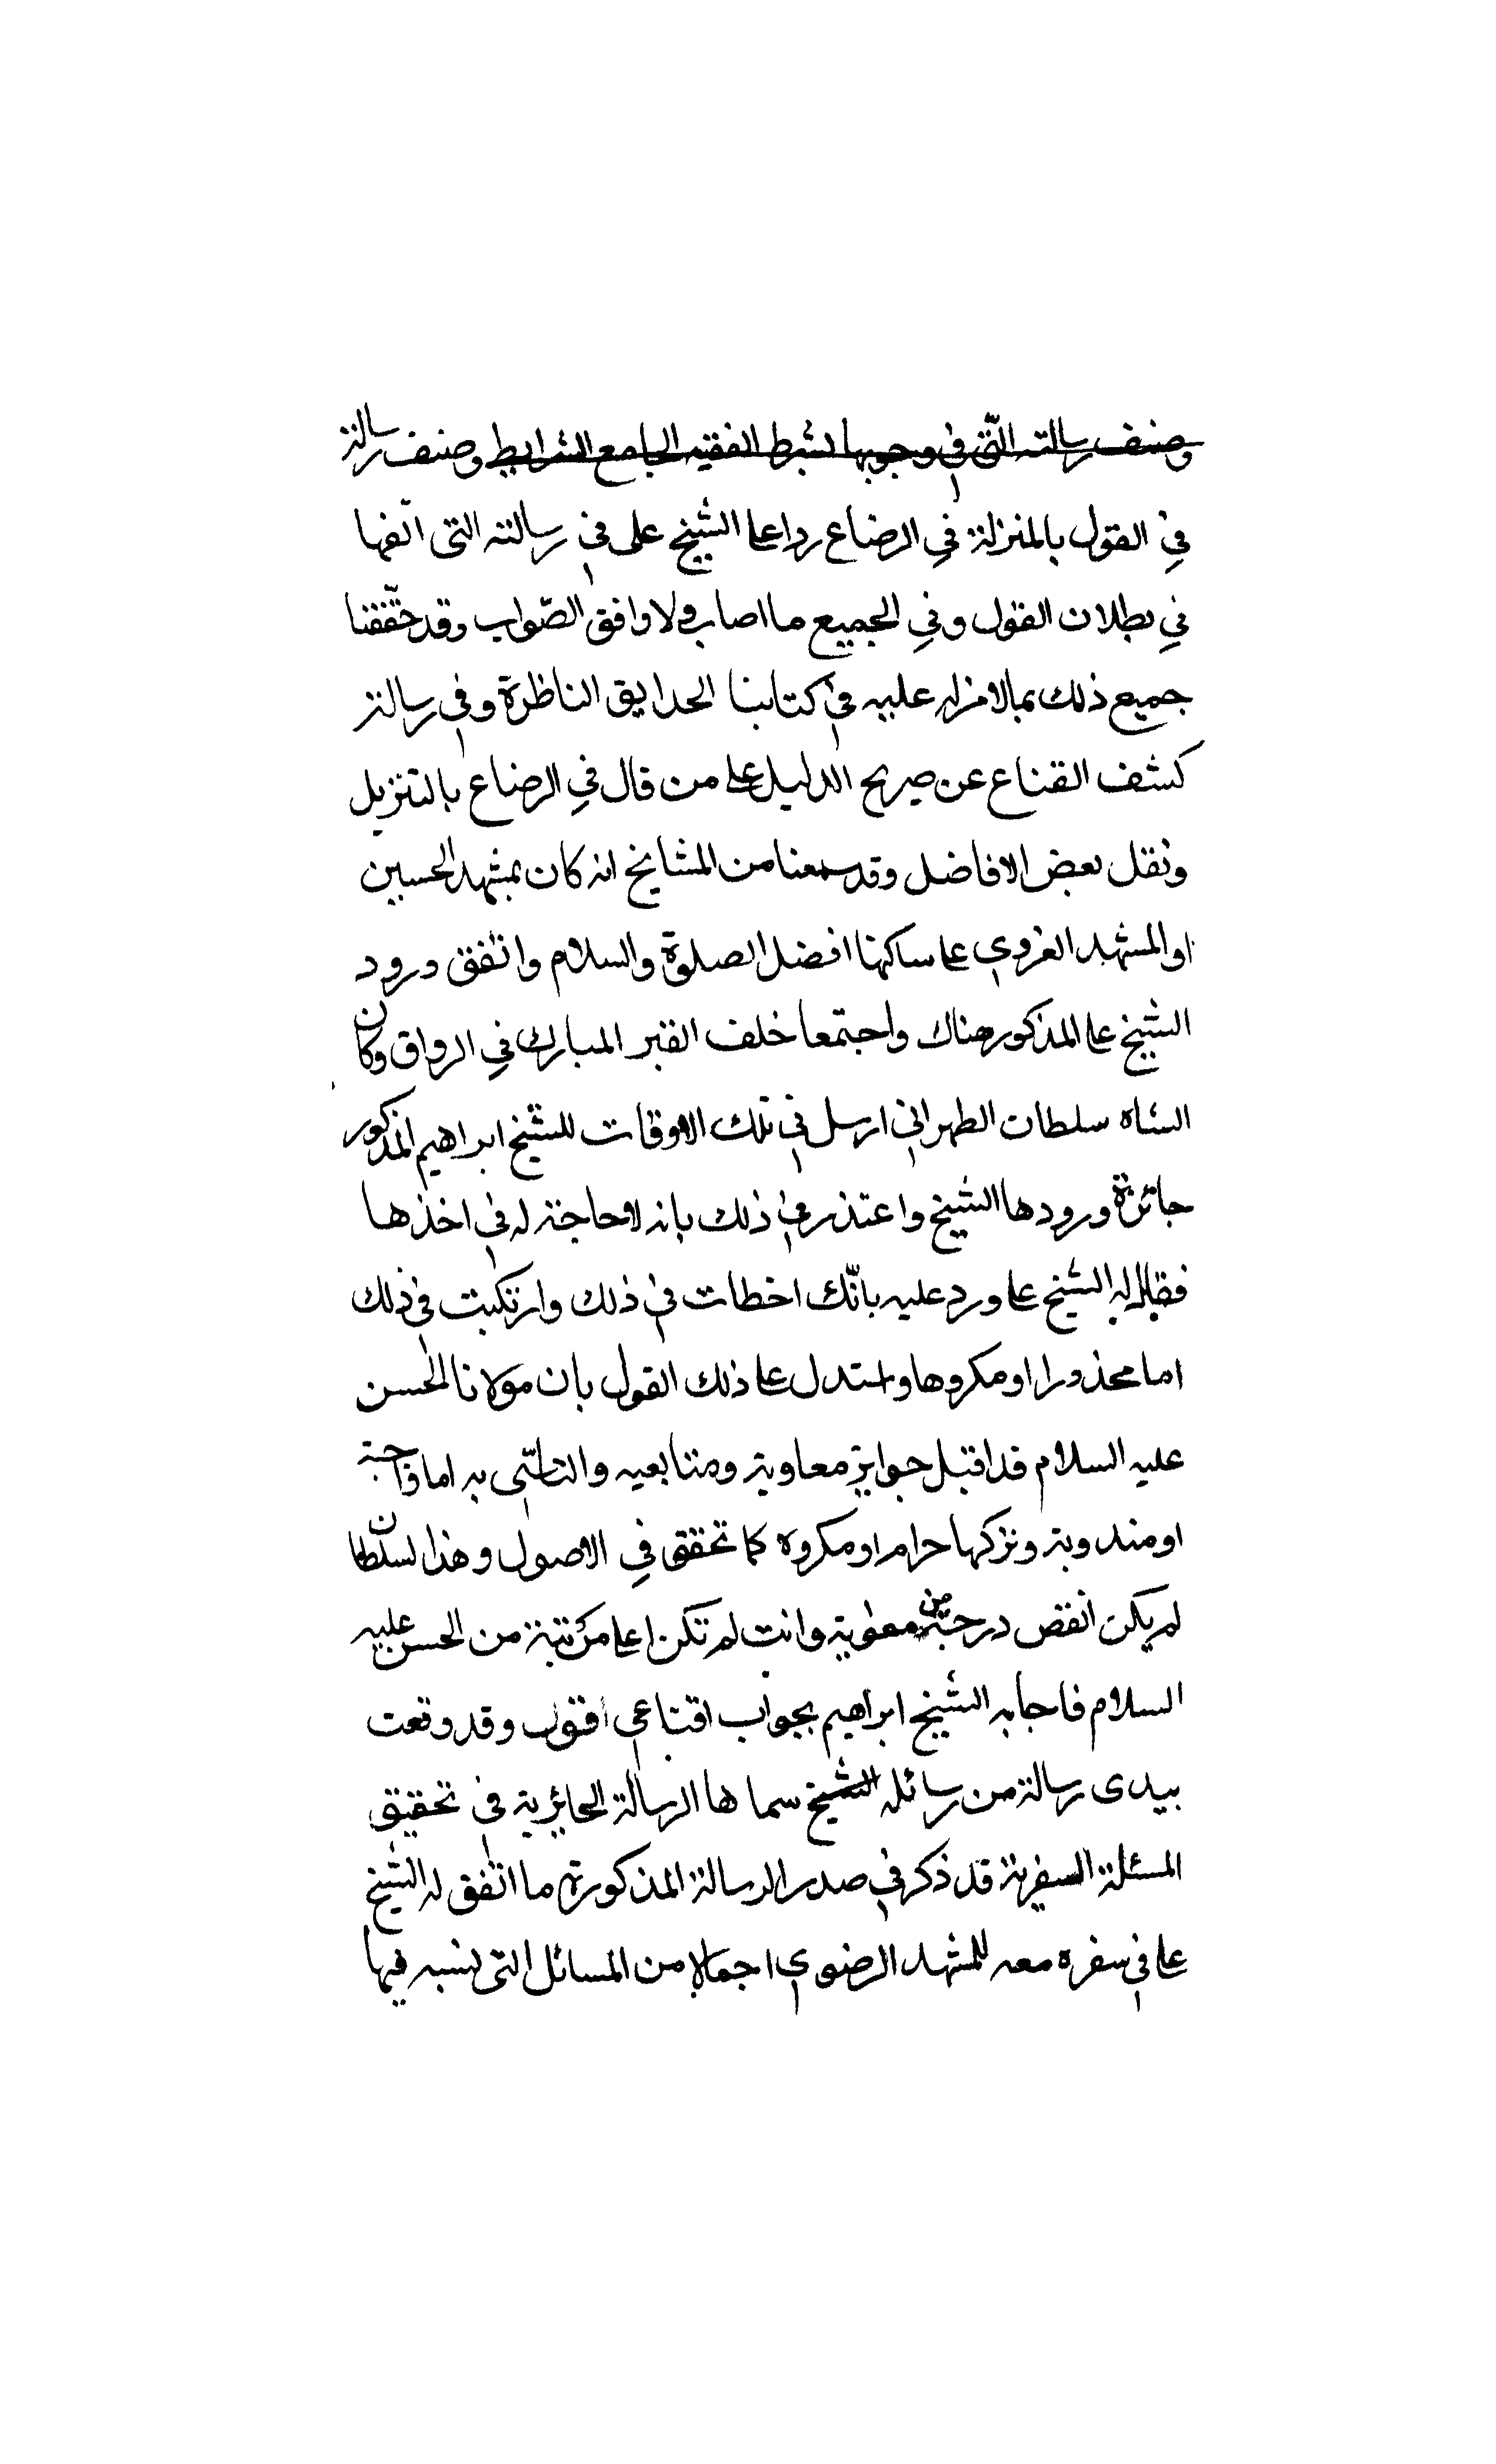 وصنف رسالته التي في وجوبها بشرط الفقيه الجامع الشرايط وصنف رسالة
في القول بالمنزلة في الرضاع ردا على الشيخ على في رسالته التي الفها
في بطلان القول وفي الجميع ما اصاب ولا وافق الصّواب وقد حقّقنا
جميع ذلك بما لا مزيد عليه في كتابنا الحدايق الناظرة وفي رسالة
كشف القناع عن صريح الدليل على من قال في الرضاع بالتنزيل
ونقل بعض الافاضل وقد سمعنا من المشايخ انه كان بمشهد الحسين
او المشهد الغروي على ساكنها افضل الصلوة والسلام واتفق ورود
الشيخ على المذكور هناك واجتمعا خلف القبر المبارك في الرواق وكان
الشاه سلطان الطهراني ارسل في تلك الاوقات للشيخ ابراهيم المذكور
جائزة وردها الشيخ واعتذر في ذلك بانه لا حاجة له في اخذها
فقال له الشيخ على ورد عليه بانّك اخطات في ذلك وارتكبت في ذلك
اما محذورا او مكروها واستدل على ذلك القول بان مولانا الحسن
عليه السلام قد اقتبل جوايز معاوية ومتابعيه والتاسّى به اما واجبة
او مندوبة وتركها حرام او مكروه كما تحقق في الاصول وهذا السلطان
لم يكن انقص درجة من معوية وانت لم تكن اعلى مرتبة من الحسن عليه
السلام فاجابه الشيخ ابراهيم بجواب اقناعي اقول وقد وقعت
بيدى رسالة من رسائله الشيخ سماها الرسالة الحائرية في تحقيق
المسئلة السفرية قد ذكر في صدر الرسالة المذكورة ما اتفق له الشيخ
على في سفره معه للمشهد الرضوي اجمالا من المسائل التي نسبه فيها